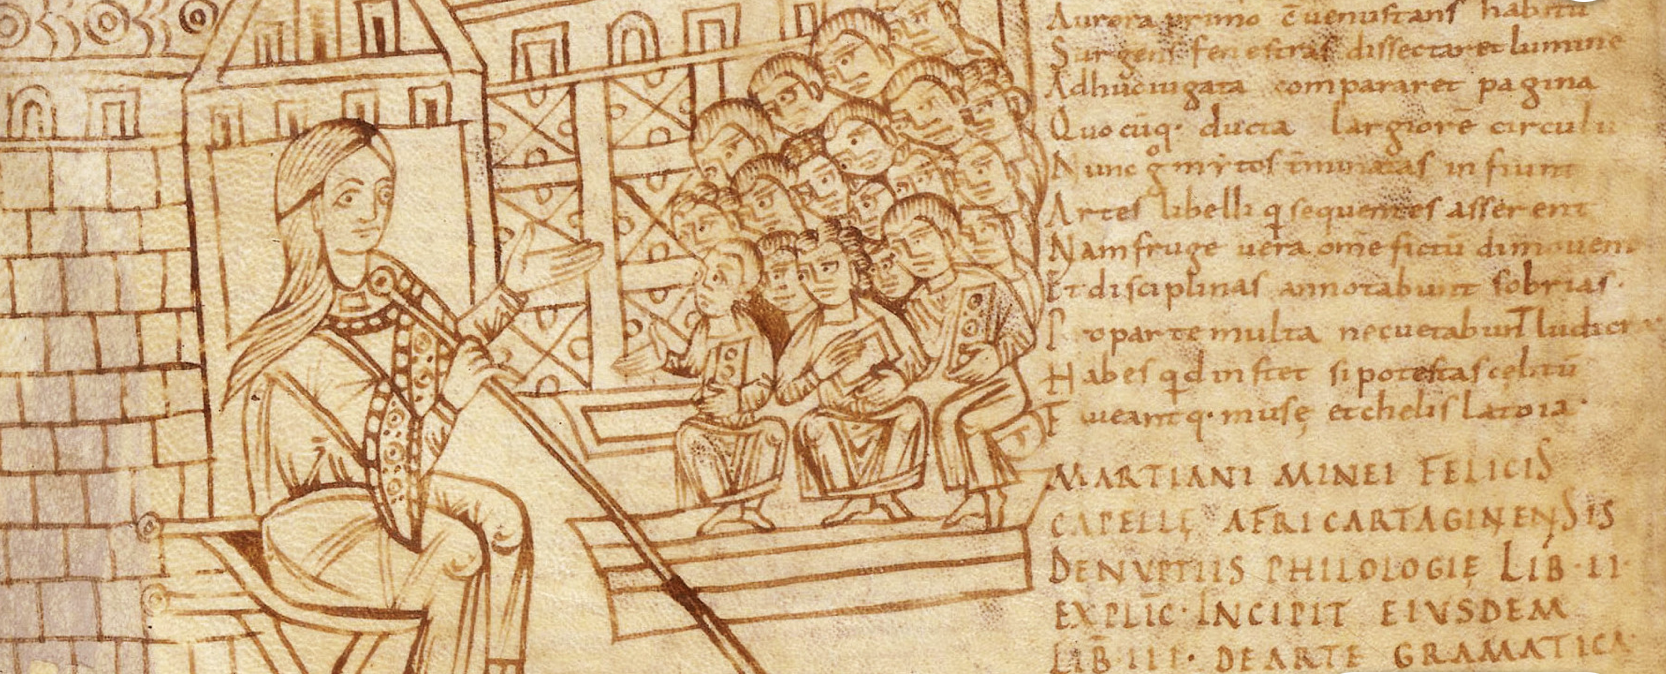 Aurora primo cvenustans habitu
Surgens fenestras dissectaret lumine
Adhuc iugata compararet pagina
Quocūq· ducta largiorē circulu
Nunc g mytos in fiunt
Artes libelli q̄ sequentes asserent
Nam fruge vera omē fictū dimovent
Et disciplinas annotabunt sobrias·
parte multa nec vetabunt ludicra
Habes qd instet si potestas cęlitū
ueantq· musę et chelis latoia·
MARTIANI MINEI FELICIS
CAPELLĘ AFRI CARTAGINENSIS
DENUPTIIS PHILOLOGIĘ LIB·II·
EXPLIC̄·INCIPIT EIUSDEM
LIB̄·III· DE ARTE GRAMATICA